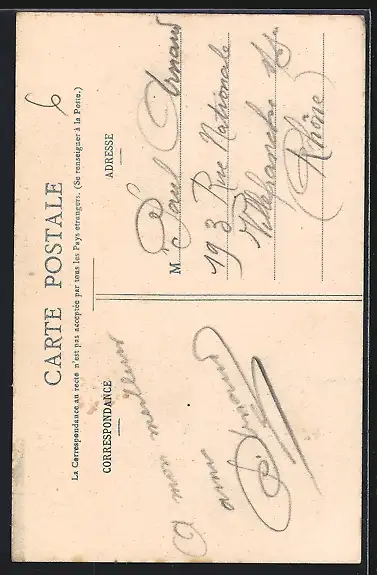 CARTE POSTALE
La Correspondance au recto n'est pas acceptée par tous les Pays étrangers. (Se renseigner à la Poste.)
6
CORRESPONDANCE
A mon meilleur
amis
ADRESSE
M Paul Arnaud
193 Rue Nationale
Villefranche s/s
(Rhône)